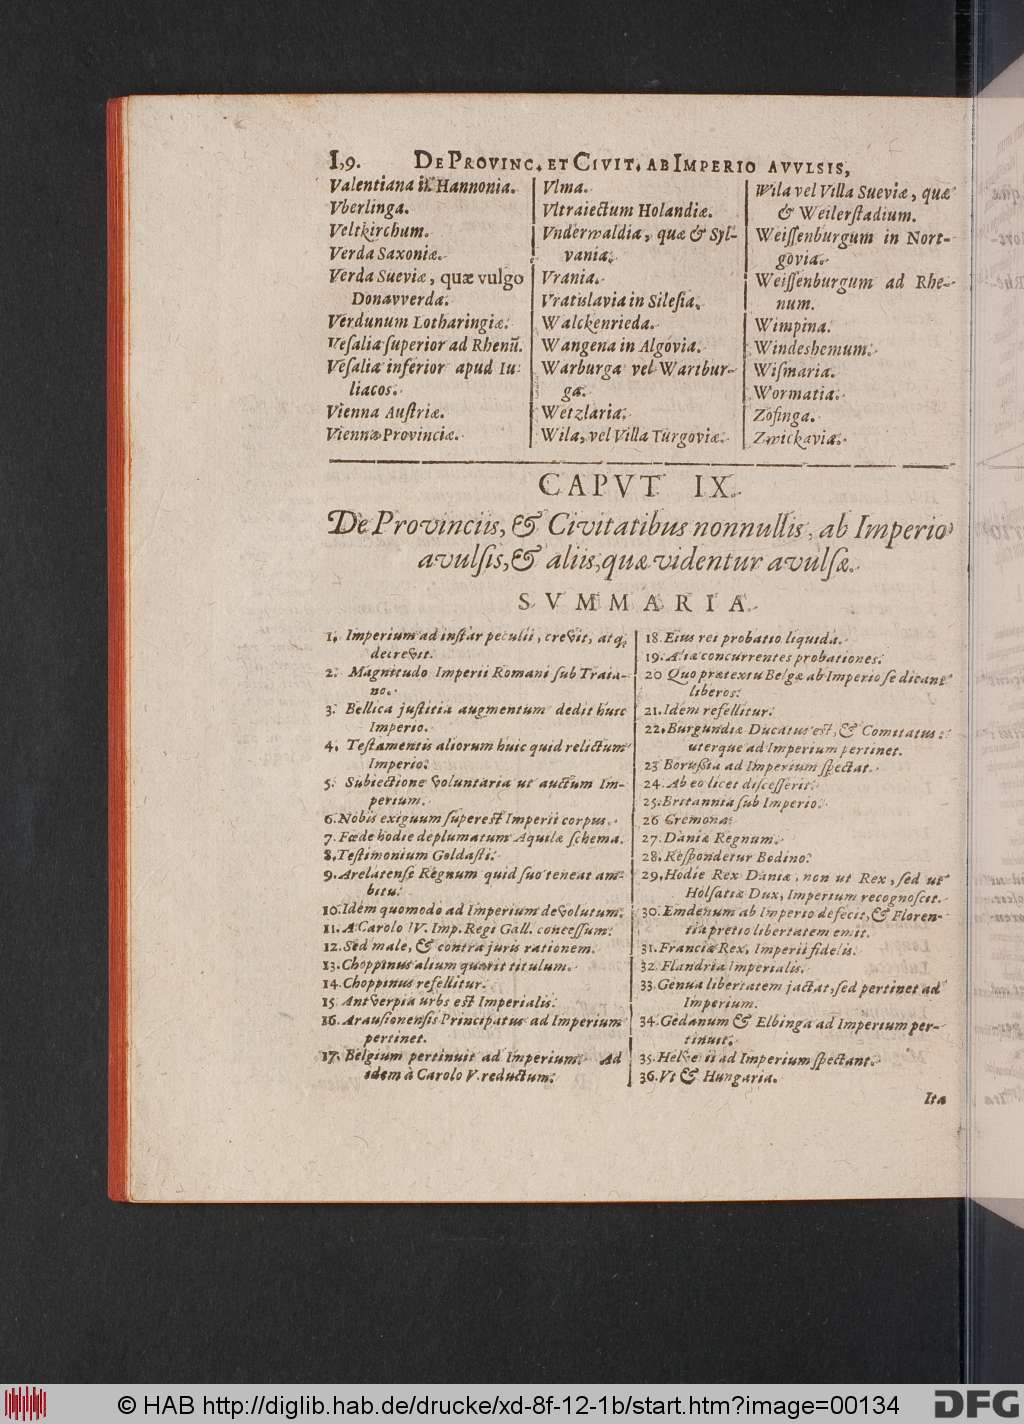 I,9. DE PROVINC. ET CIVIT. AB IMPERIO AVVLSIS,
Valentiana in Hannonia.
Vberlinga.
Veltkirchum.
Verda Saxoniæ.
Verda Sueviæ, quæ vulgo
Donavverda.
Verdunum Lotharingiæ.
Veſalia ſuperior ad Rhenū.
Veſalia inferior apud Iu-
liacos.
Vienna Auſtriæ.
Vienna Provinciæ.
Vlma.
Vltraiectum Holandiæ.
Vnderwaldia, quæ & Syl-
vania.
Vrania.
Vratislavia in Sileſia.
Walckenrieda.
Wangena in Algovia.
Warburga vel Wartbur-
ga.
Wetzlaria.
Wila, vel Villa Turgoviæ.
Wila vel Villa Sueviæ, quæ
& Weilerſtadium.
Weiſſenburgum in Nort-
govia.
Weiſſenburgum ad Rhe-
num.
Wimpina.
Windeshemum.
Wiſmaria.
Wormatia.
Zofinga.
Zwickavia.
CAPVT IX.
De Provinciis, & Civitatibus nonnullis, ab Imperio
avulſis, & aliis, quæ videntur avulſæ.
SVMMARIA.
1. Imperium ad inſtar peculii, crevit, atq;
decrevit.
2. Magnitudo Imperii Romani ſub Traia-
no.
3. Bellica juſtitia augmentum dedit huic
Imperio.
4. Teſtamentis aliorum huic quid relictum
Imperio.
5. Subiectione voluntaria ut auctum Im-
perium.
6. Nobis exiguum ſupereſt Imperii corpus.
7. Fœde hodie deplumatum Aquilæ ſchema.
8. Teſtimonium Goldaſti.
9. Arelatenſe Regnum quid ſuo teneat am-
bitu.
10. Idem quomodo ad Imperium devolutum.
11. A Carolo IV. Imp. Regi Gall. conceſſum.
12. Sed male, & contra juris rationem.
13. Choppinus alium quærit titulum.
14. Choppinus refellitur.
15. Antverpia urbs eſt Imperialis.
16. Arauſionenſis Principatus ad Imperium
pertinet.
17. Belgium pertinuit ad Imperium. Ad
idem à Carolo V. reductum.
18. Eius rei probatio liquida.
19. Aliæ concurrentes probationes.
20 Quo prætextu Belgæ ab Imperio ſe dicant
liberos.
21. Idem refellitur.
22. Burgundiæ Ducatus eſt, & Comitatus:
uterque ad Imperium pertinet.
23 Boruſſia ad Imperium ſpectat.
24. Ab eo licet diſceſſerit.
25. Britannia ſub Imperio.
26 Cremona.
27. Daniæ Regnum.
28. Reſpondetur Bodino.
29. Hodie Rex Daniæ, non ut Rex, ſed ut
Holſatiæ Dux, Imperium recognoſcit.
30. Emdenum ab Imperio defecit, & Floren-
tia pretio libertatem emit.
31. Franciæ Rex, Imperii fidelis.
32. Flandria Imperialis.
33 Genua libertatem jactat, ſed pertinet ad
Imperium.
34. Gedanum & Elbinga ad Imperium per-
tinuit.
35. Helvetii ad Imperium ſpectant.
36. Vt & Hungaria.
Ita
© HAB http://diglib.hab.de/drucke/xd-8f-12-1b/start.htm?image=00134
DFG